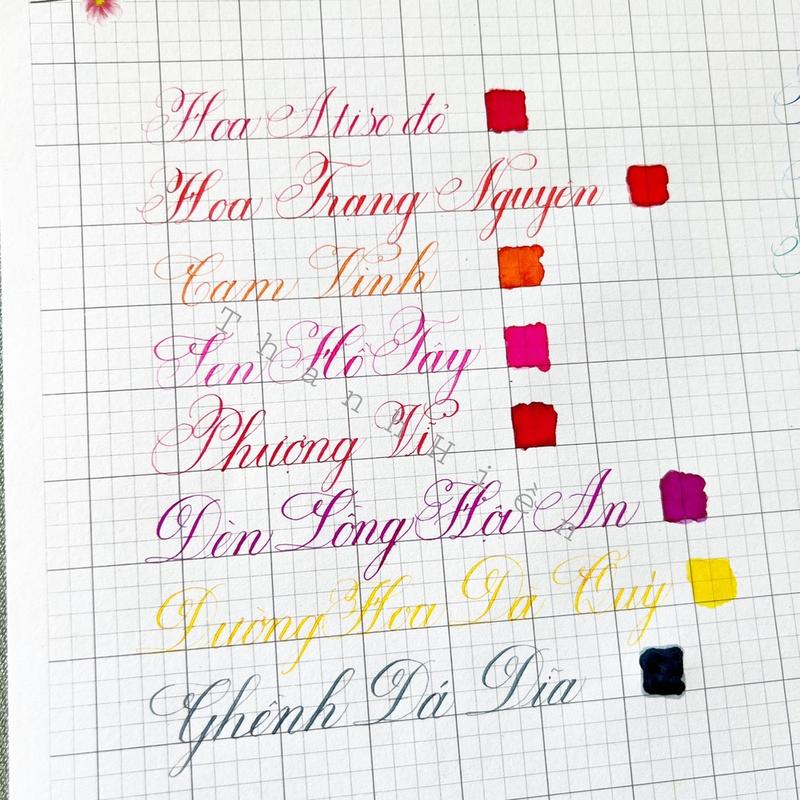 Hoa Atiso đỏ
Hoa Trạng Nguyên
Cam Vinh
Sen Hồ Tây
Phượng Vĩ
Đèn Lồng Hội An
Đường Hoa Dã Quỳ
Ghềnh Đá Dĩa
Thanh Hiền